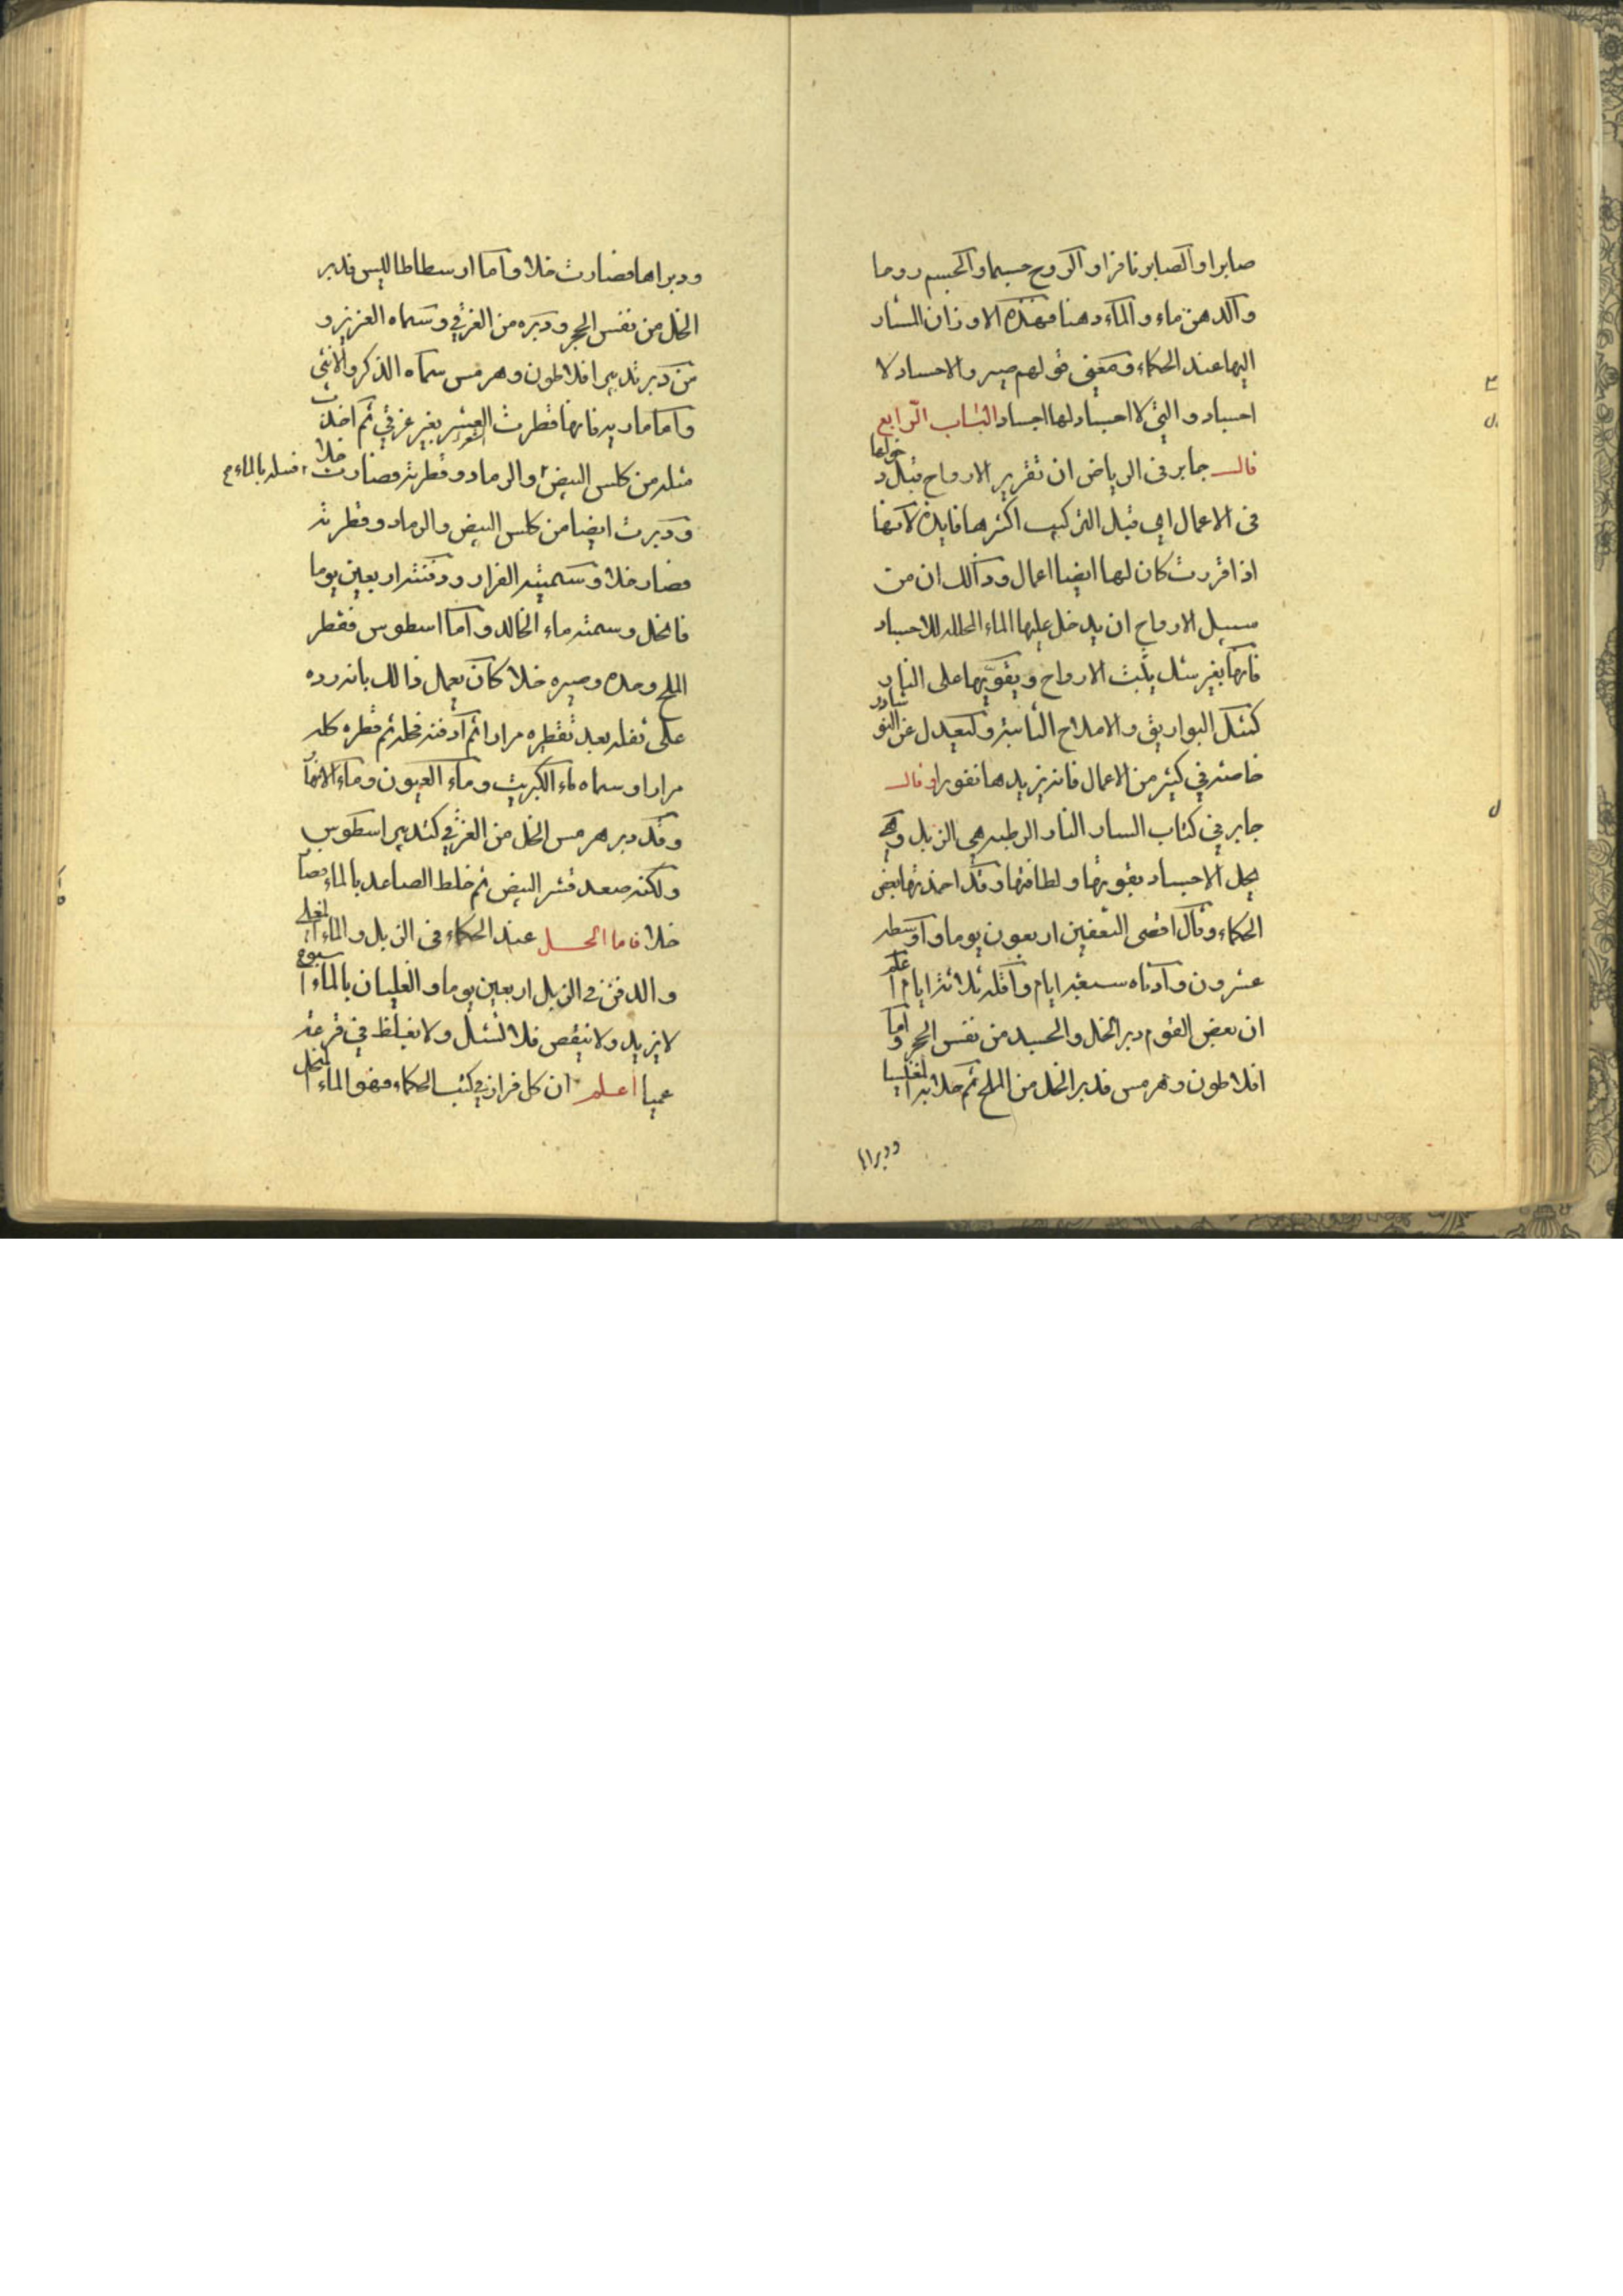 صابرا والصابر نافرا والروح جسما والجسم روحا
والدهن ماء والماء دهنا فهذه الاوزان المشار
اليها عند الحكماء ومعنى قولهم صيروا الاجساد لا
اجساد والتى لا اجساد لها اجساد الباب الرابع
قال جابر فى الرياض ان تقرير الارواح قبل دخولها
فى الاعمال اي قبل التركيب اكثرها فايدة لانها
اذا قررت كان لها ايضا اعمال وذالك ان من
سبيل الارواح ان يدخل عليها الماء المحلله للاجساد
فانها بغير شك يثبت الارواح ويقويها على النار
كشكل البواريق والاملاح النابتة وليعدل عن النوشادر
خاصة في كثير من الاعمال فانه يزيدها نفورا وقال
جابر في كتاب النار النار الرطبه هي الزبل وهي
يحل الاجساد بقوتها ولطافتها وقد احمدتها بعض
الحكماء وقال اقصى التعفين اربعون يوما واوسطه
عشرون وادناه سبعة ايام واقله ثلاثة ايام اعلم
ان بعض القوم دبر الخل والجسد من نفس الحجر واما
افلاطون وهرمس فدبر الخل من الملح ثم حلا به المغنيسيا
ودبراها
ودبراها فصارت خلا واما ارسطاطاليس فدبر
الخل من نفس الحجر ودبره من الغرفي وسماه العزيز و
من دبر تدبير افلاطون وهرمس سماه الذكر والانثى
واما ماريه فانها قطرت الشعر بغير غرقي ثم اخذت
مثله من كلس البيض والرماد وقطرته فصارت خلا
فسله بالماء
ودبرت ايضا من كلس البيض والرماد وقطرته
فصار خلا وسميته الفرار ودفنته اربعين يوما
فانحل وسمته ماء الخالد واما اسطوس فقطر
الملح وحده وصيره خلا كان يعمل ذالك بانه رده
على ثفله بعد تقطيره مرارا ثم ادفنه فحله ثم قطره كله
مرارا وسماه ماء الكبريت وماء العيون وماء الانهار
وقد دبر هرمس الخل من الغرفي كتدبير اسطوس
ولكنه صعد قشر البيض ثم خلط الصاعد بالماء فصار
خلا فاما الحل عند الحكماء فى الزبل والماء المغلى
والدفن في الزبل اربعين يوما والغليان بالماء اسبوع
لا يزيد ولا ينقص فلا تشك ولا تغلظ في قرعة
عميا اعلم ان كل فرار في كتب الحكماء فهو الماء المنحل